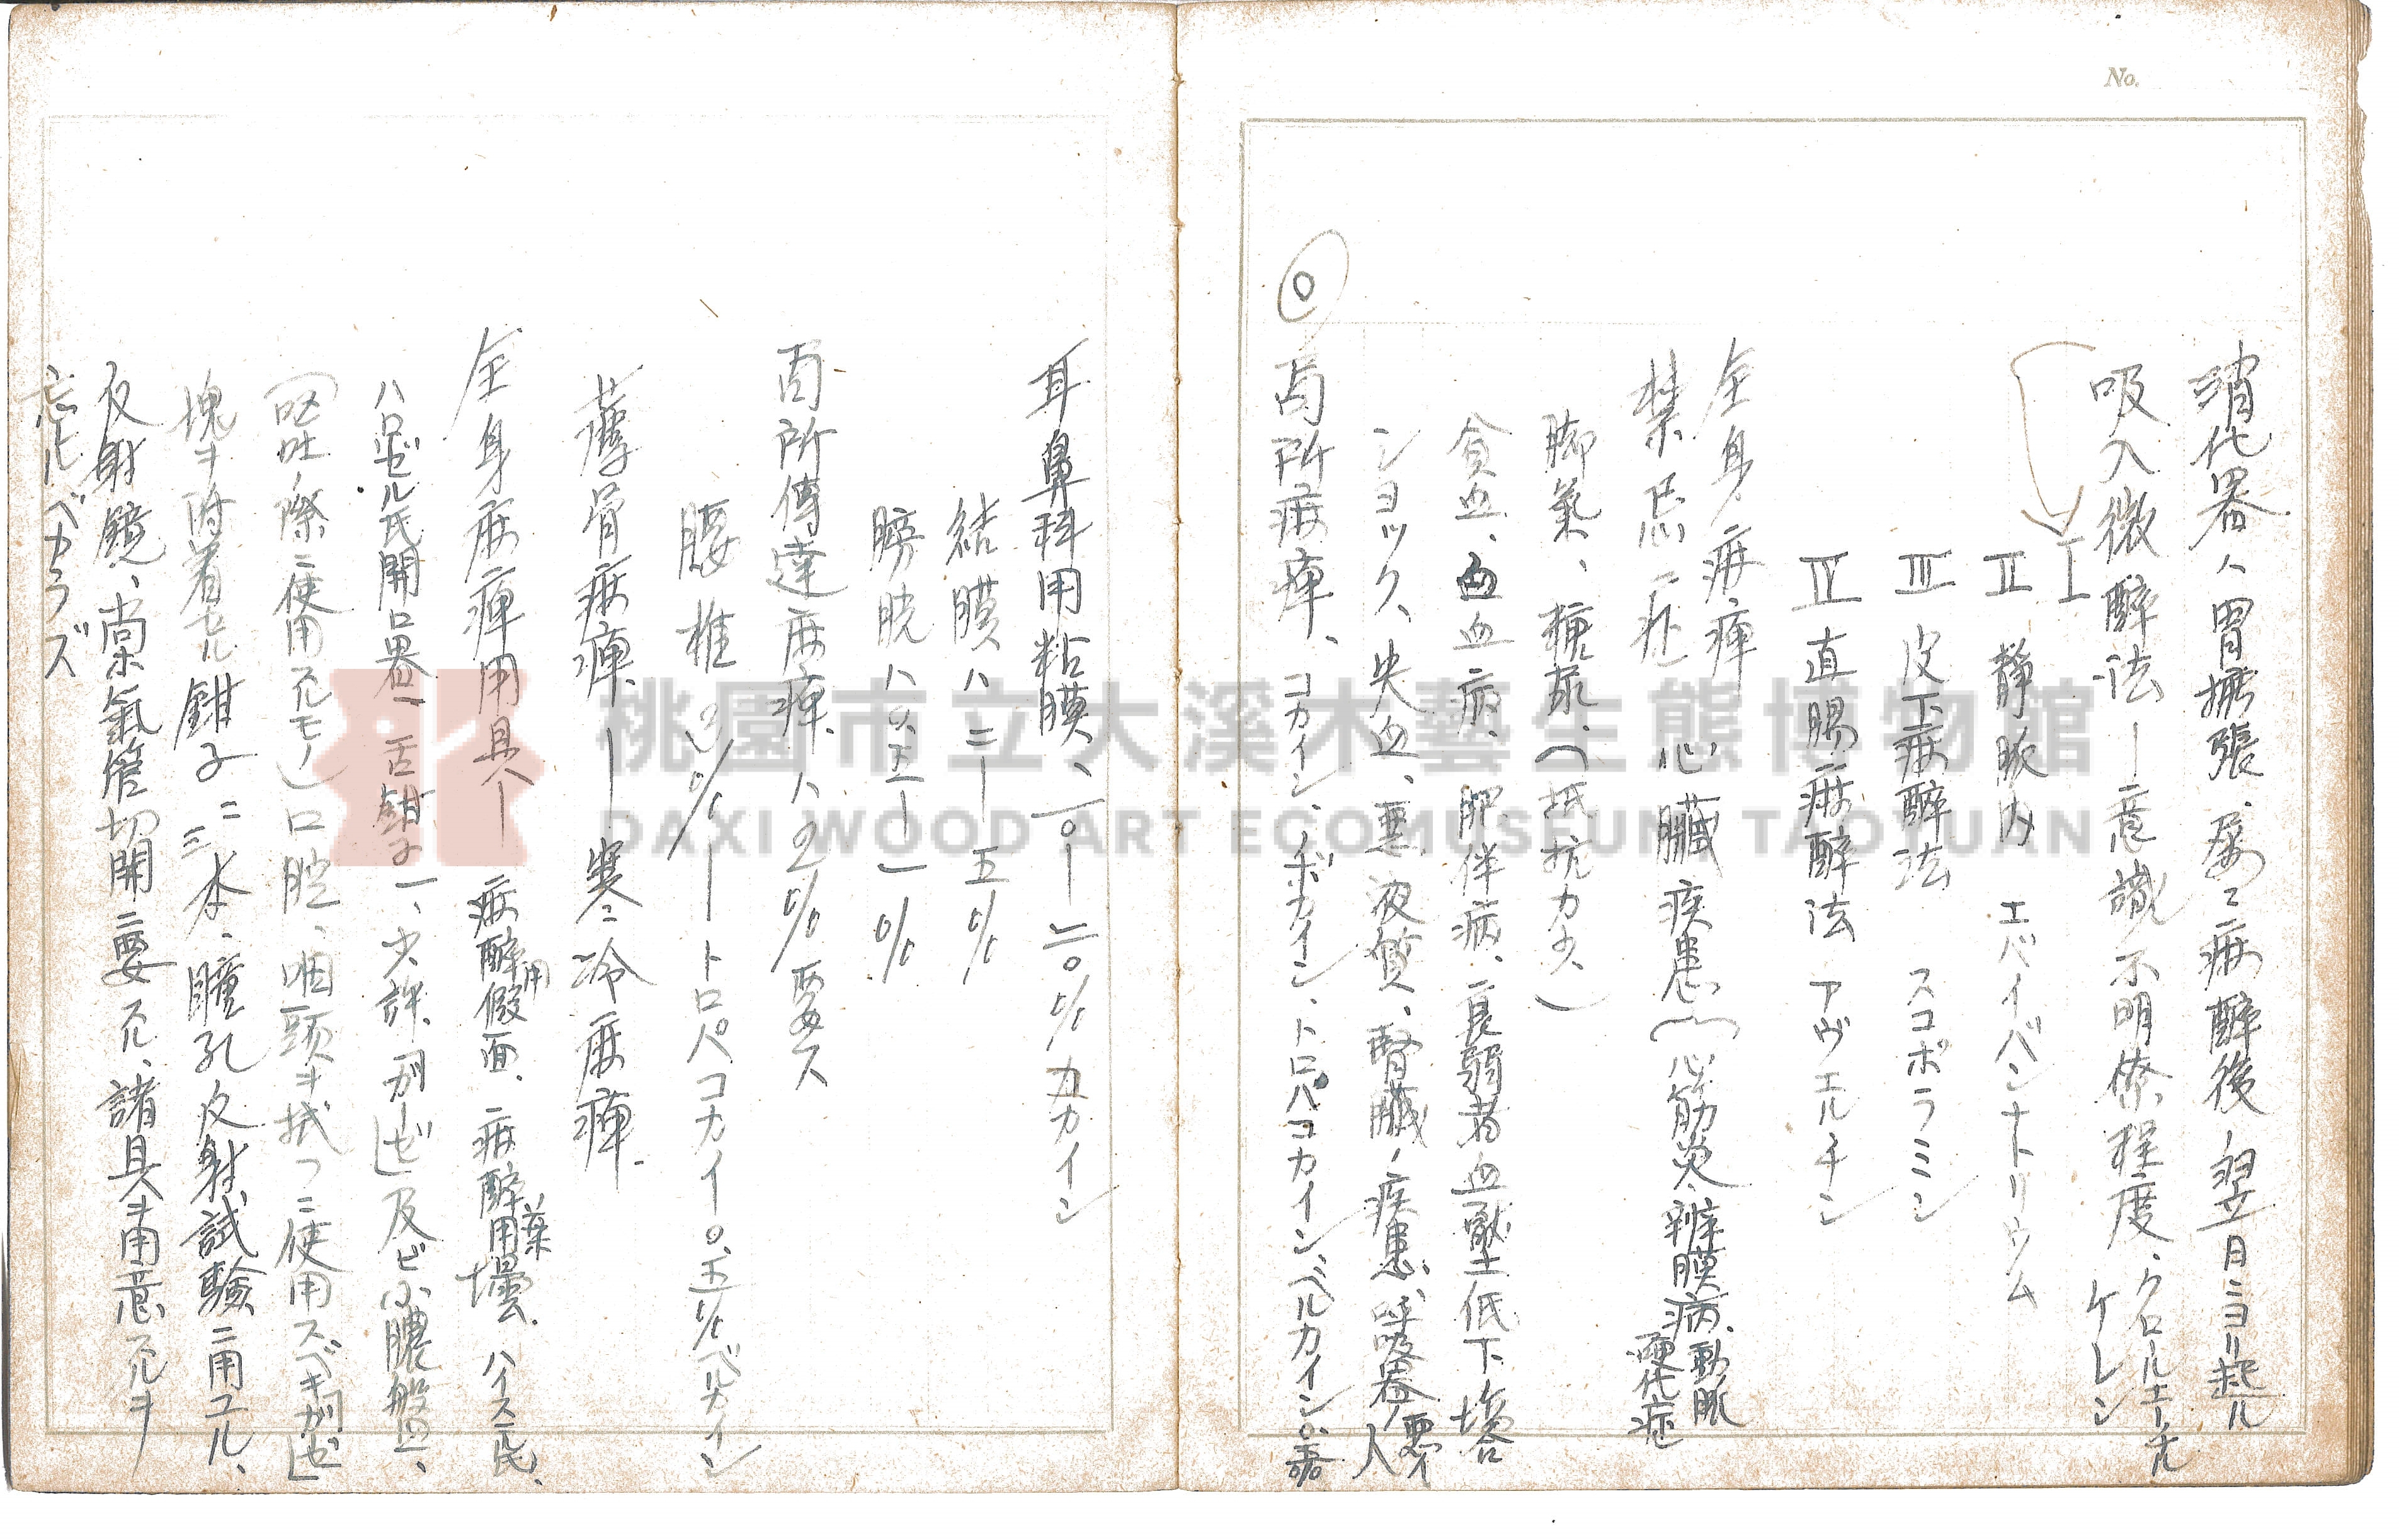 No.
消化器ハ胃拡張、屡々痲醉後翌日ニヨリ起ル
吸入微醉法ー意識不明僚程度、クロールエーテル
ケレン
I
II 静脈内 エバイバンナトリウム
III 皮下痲醉法 スコポラミン
IV 直腸痲醉法 アヴェルチン
全身痲痺
禁忌症 心臓疾患(心筋炎、辨膜病、動脈
硬化症
脚氣、糖尿、(抵抗力少、)
貧血、白血病、肥伴病、衰弱者血壓低下場合
ショック、失血、悪液質、腎臓ノ疾患、呼吸器ノ悪イ
人
◎ 局所痲痺、コカイン、ノボカイン、トロパコカイン、ペルカイン。
耳鼻科用粘膜、一〇ー二〇%カカイン
結膜ハ二ー五%
膀胱ハ〇.五ー一%
局所傳達麻痺、ハ2%要ス
腰椎 2%ートロペコカイ。〇.五%ペルカイン
薦骨痲痺ー寒冷麻痺
全身麻痺用具ー痲醉用假面、痲醉用薬壜、ハイステ氏、
ハロゼル氏開口器一舌鉗子一、少許、「ガーゼ」及ビ小膿盤一、
(嘔吐ノ際ニ使用スルモノ)口腔、咽頭ヲ拭フニ使用スベキ「ガーゼ」
塊ヲ附着セル鉗子二、三本、瞳孔反射試験ニ用ユル、
反射鏡、尚氣管切開ニ要スル、諸具ヲ用意スルヲ
忘ルベカラズ
桃園市立大溪木藝生態博物館
DAXI WOOD ART ECOMUSEUM TAOYUAN